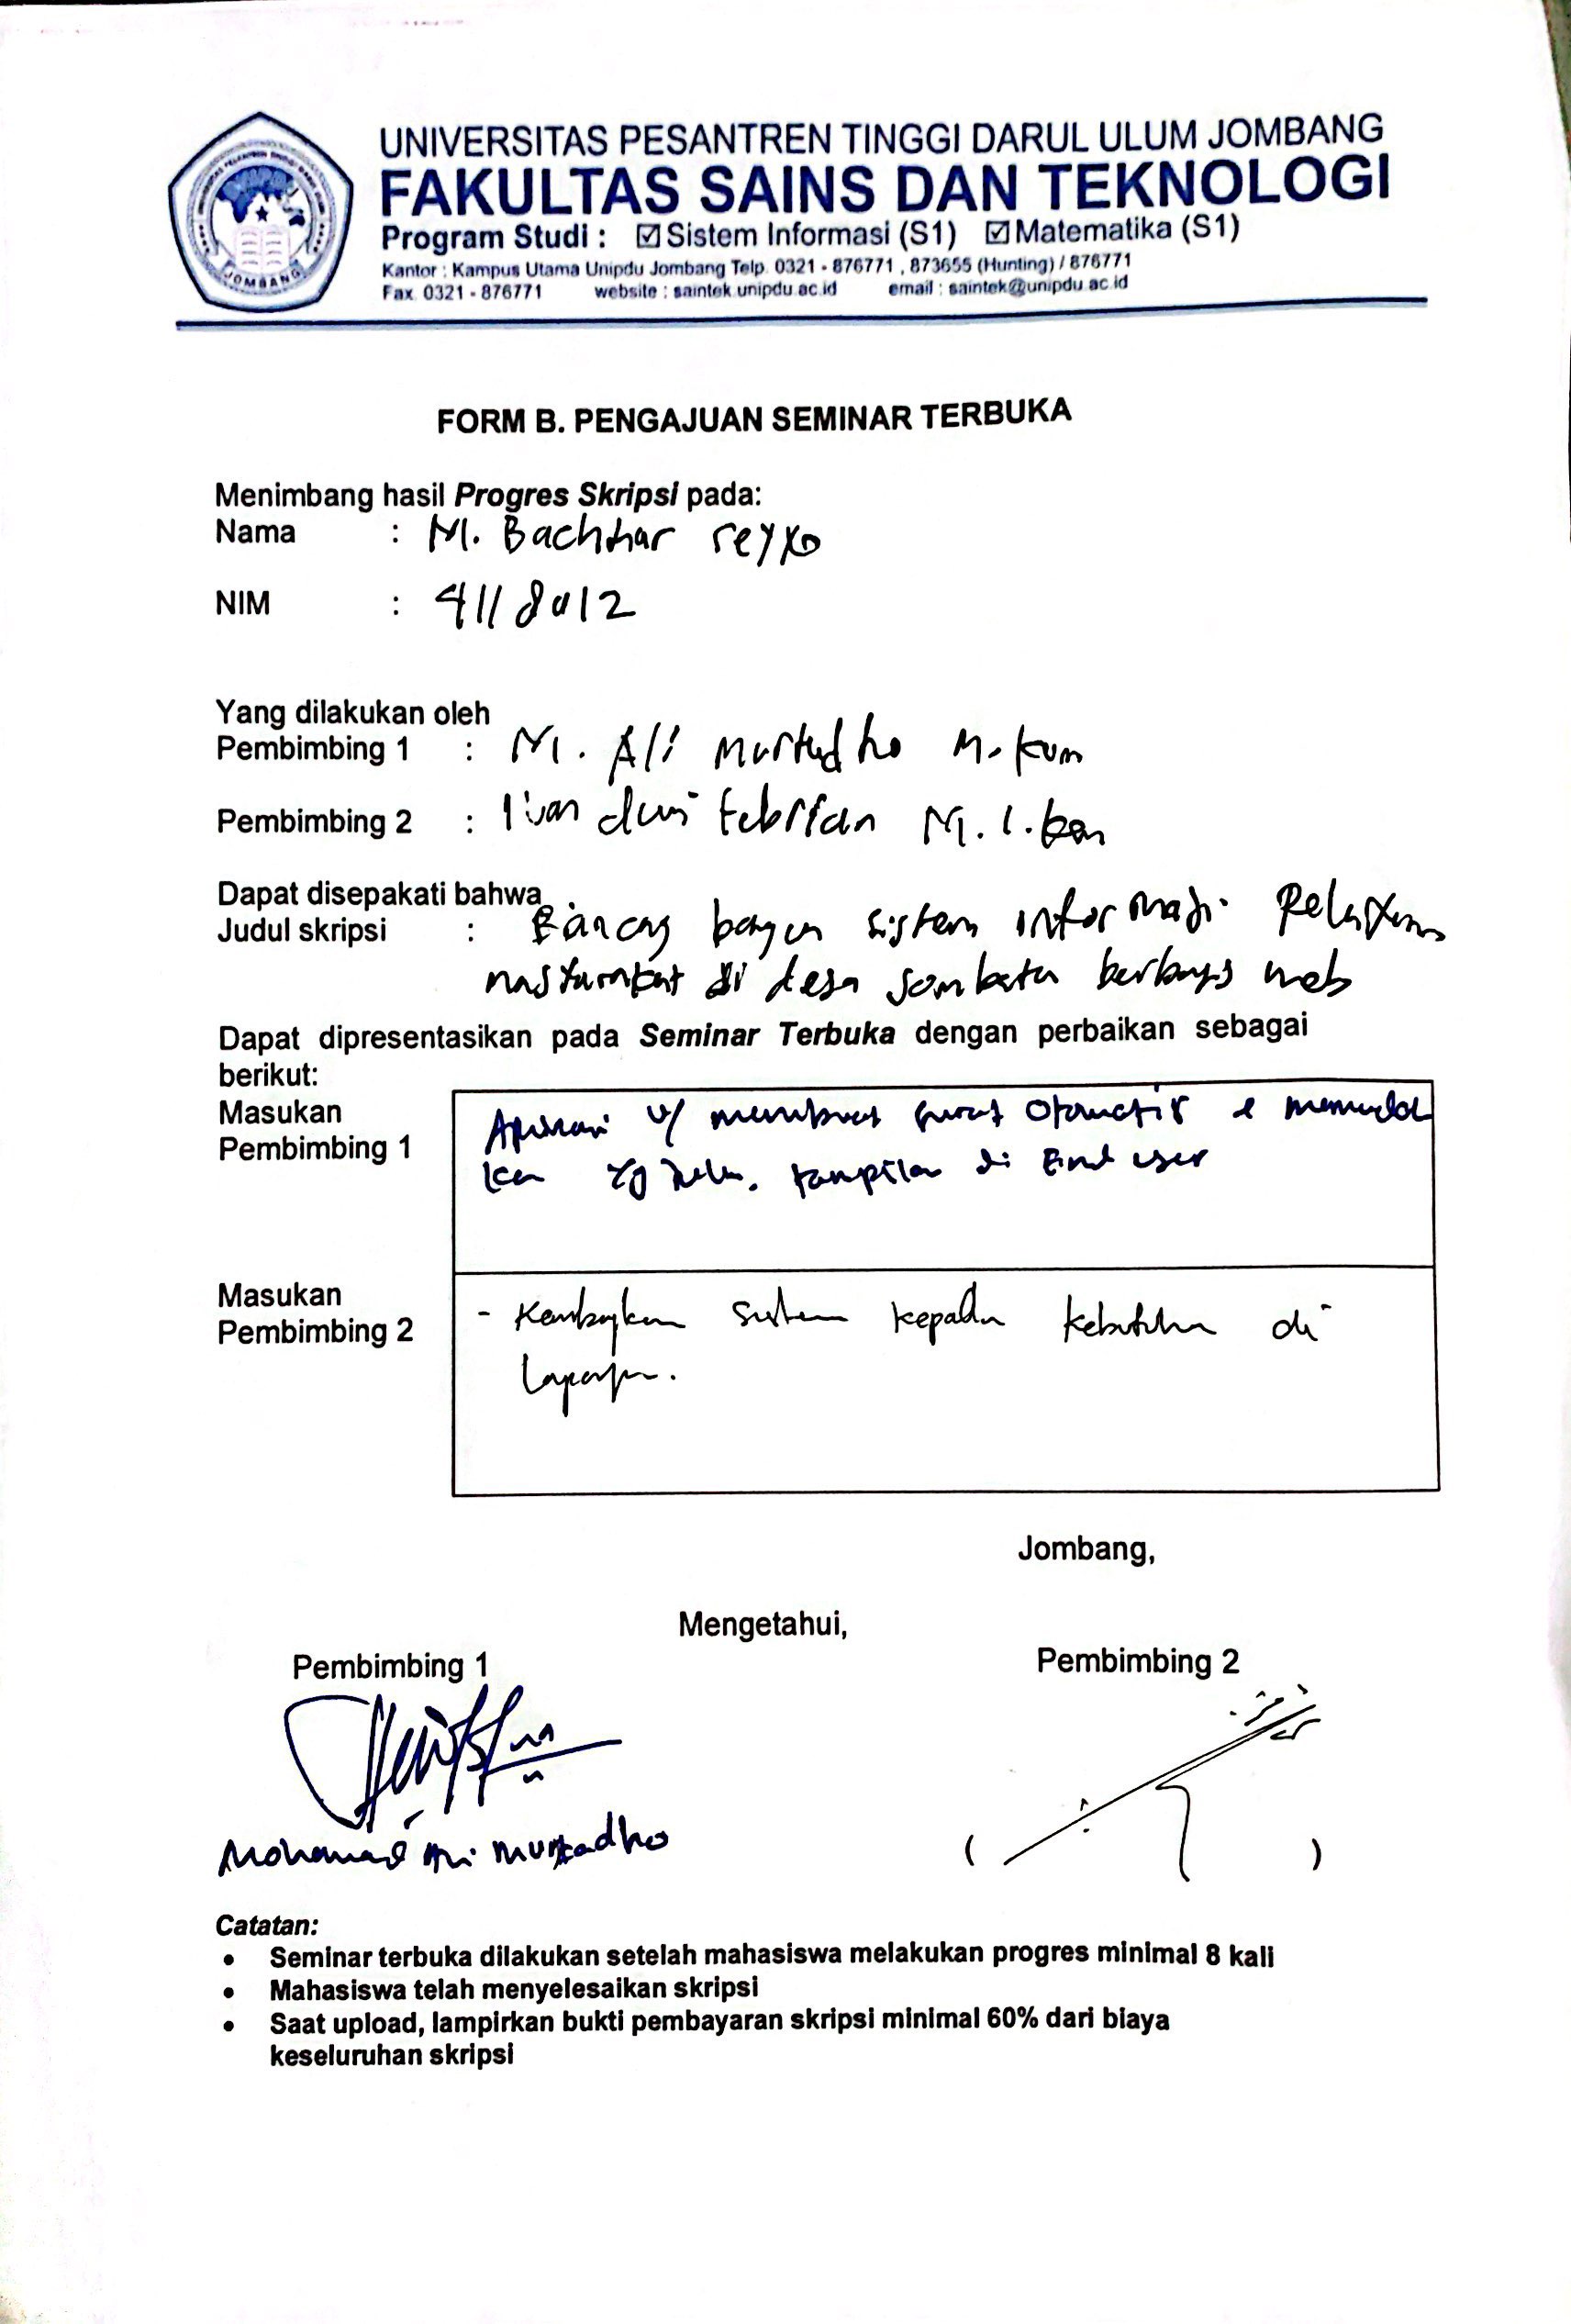 UNIVERSITAS PESANTREN TINGGI DARUL ULUM JOMBANG
FAKULTAS SAINS DAN TEKNOLOGI
Program Studi : ☑ Sistem Informasi (S1) ☑ Matematika (S1)
Kantor : Kampus Utama Unipdu Jombang Telp. 0321 - 876771 , 873655 (Hunting) / 876771
Fax. 0321 - 876771 website : saintek.unipdu.ac.id email : saintek@unipdu.ac.id
JOMBANG
FORM B. PENGAJUAN SEMINAR TERBUKA
Menimbang hasil Progres Skripsi pada:
Nama : M. Bachtiar
NIM : 4118012
Yang dilakukan oleh
Pembimbing 1 : M. Ali Murtadho M. Kom
Pembimbing 2 : Ivan dwi Febrian M.
Dapat disepakati bahwa
Judul skripsi : Rancang bangun sistem informasi Pelayanan
masyarakat di desa berbasis web
Dapat dipresentasikan pada Seminar Terbuka dengan perbaikan sebagai
berikut:
Masukan
Pembimbing 1
Aplikasi u/ membuat surat otomatis & memudah
kan yg tampilan di End user
Masukan
Pembimbing 2
- Kembangkan sistem kepada kebutuhan di
Lapangan.
Jombang,
Mengetahui,
Pembimbing 1 Pembimbing 2
Mohamad Ali Murtadho ( )
Catatan:
• Seminar terbuka dilakukan setelah mahasiswa melakukan progres minimal 8 kali
• Mahasiswa telah menyelesaikan skripsi
• Saat upload, lampirkan bukti pembayaran skripsi minimal 60% dari biaya
keseluruhan skripsi